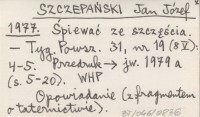 SZCZEPAŃSKI Jan Józef
1977. Śpiewać ze szczęścia.
— Tyg. Powsz. 31, nr 19 (8 V):
4-5. Przedruk → jw. 1979 a
(s. 5-20). WHP
Opowiadanie (z fragmentem
o taternictwie).